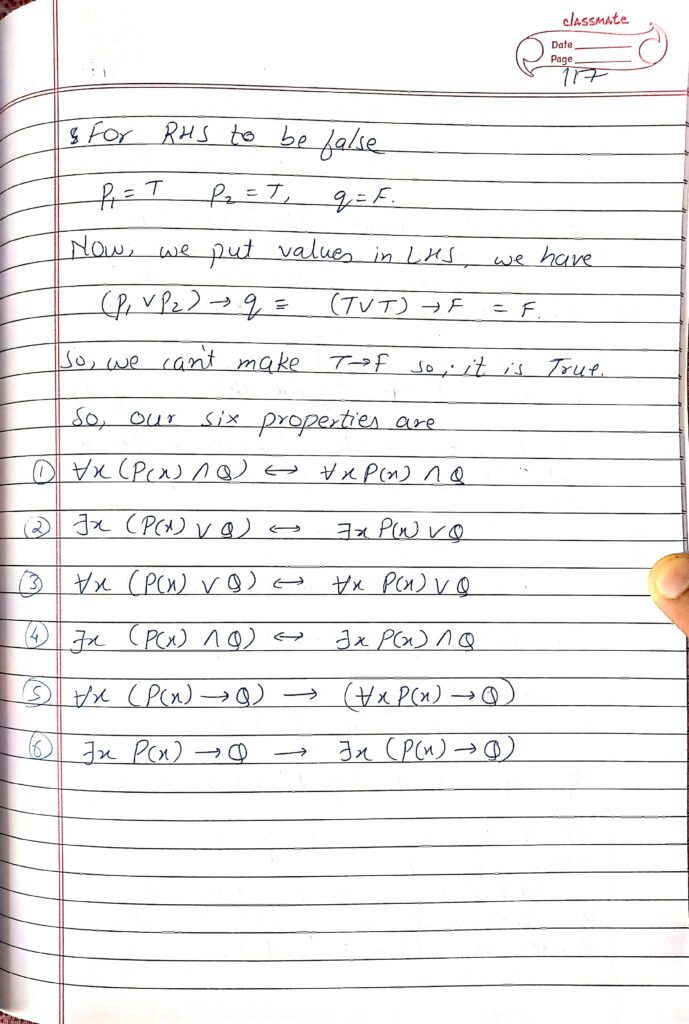 classmate
Date
Page
117
For RHS to be false
P₁ = T P₂ = T, q = F.
Now, we put values in LHS, we have
(P₁ ∨ P₂) → q = (T ∨ T) → F = F.
So, we can't make T→F so, it is True.
So, our six properties are
① ∀x (P(x) ∧ Q) ↔ ∀x P(x) ∧ Q
② ∃x (P(x) ∨ Q) ↔ ∃x P(x) ∨ Q
③ ∀x (P(x) ∨ Q) ↔ ∀x P(x) ∨ Q
④ ∃x (P(x) ∧ Q) ↔ ∃x P(x) ∧ Q
⑤ ∀x (P(x) → Q) → (∀x P(x) → Q)
⑥ ∃x P(x) → Q → ∃x (P(x) → Q)